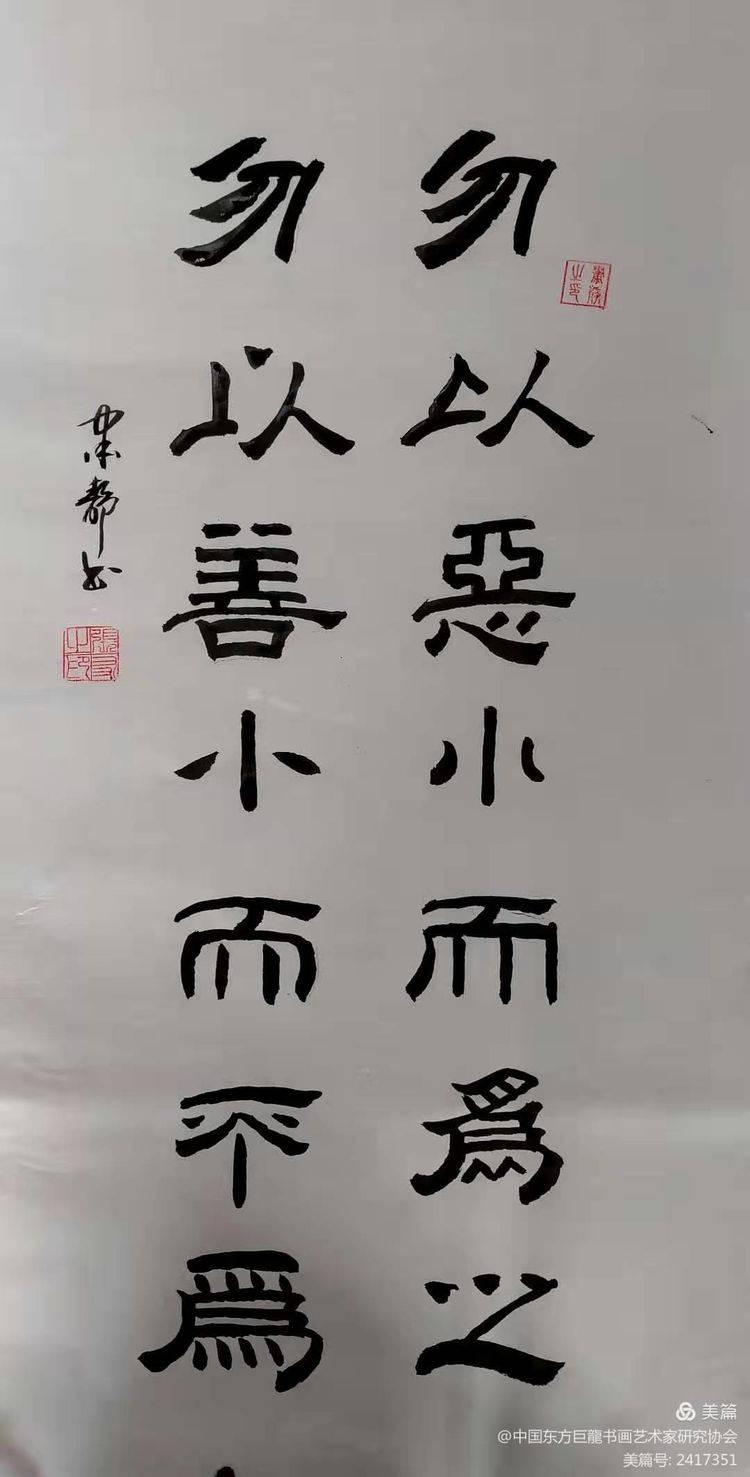 勿以惡小而爲之
勿以善小而不爲
書
美篇
@中国东方巨龍书画艺术家研究协会
美篇号: 2417351